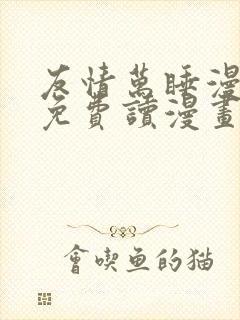 友情萬睡漫
免費讀漫畫
會喫魚的猫